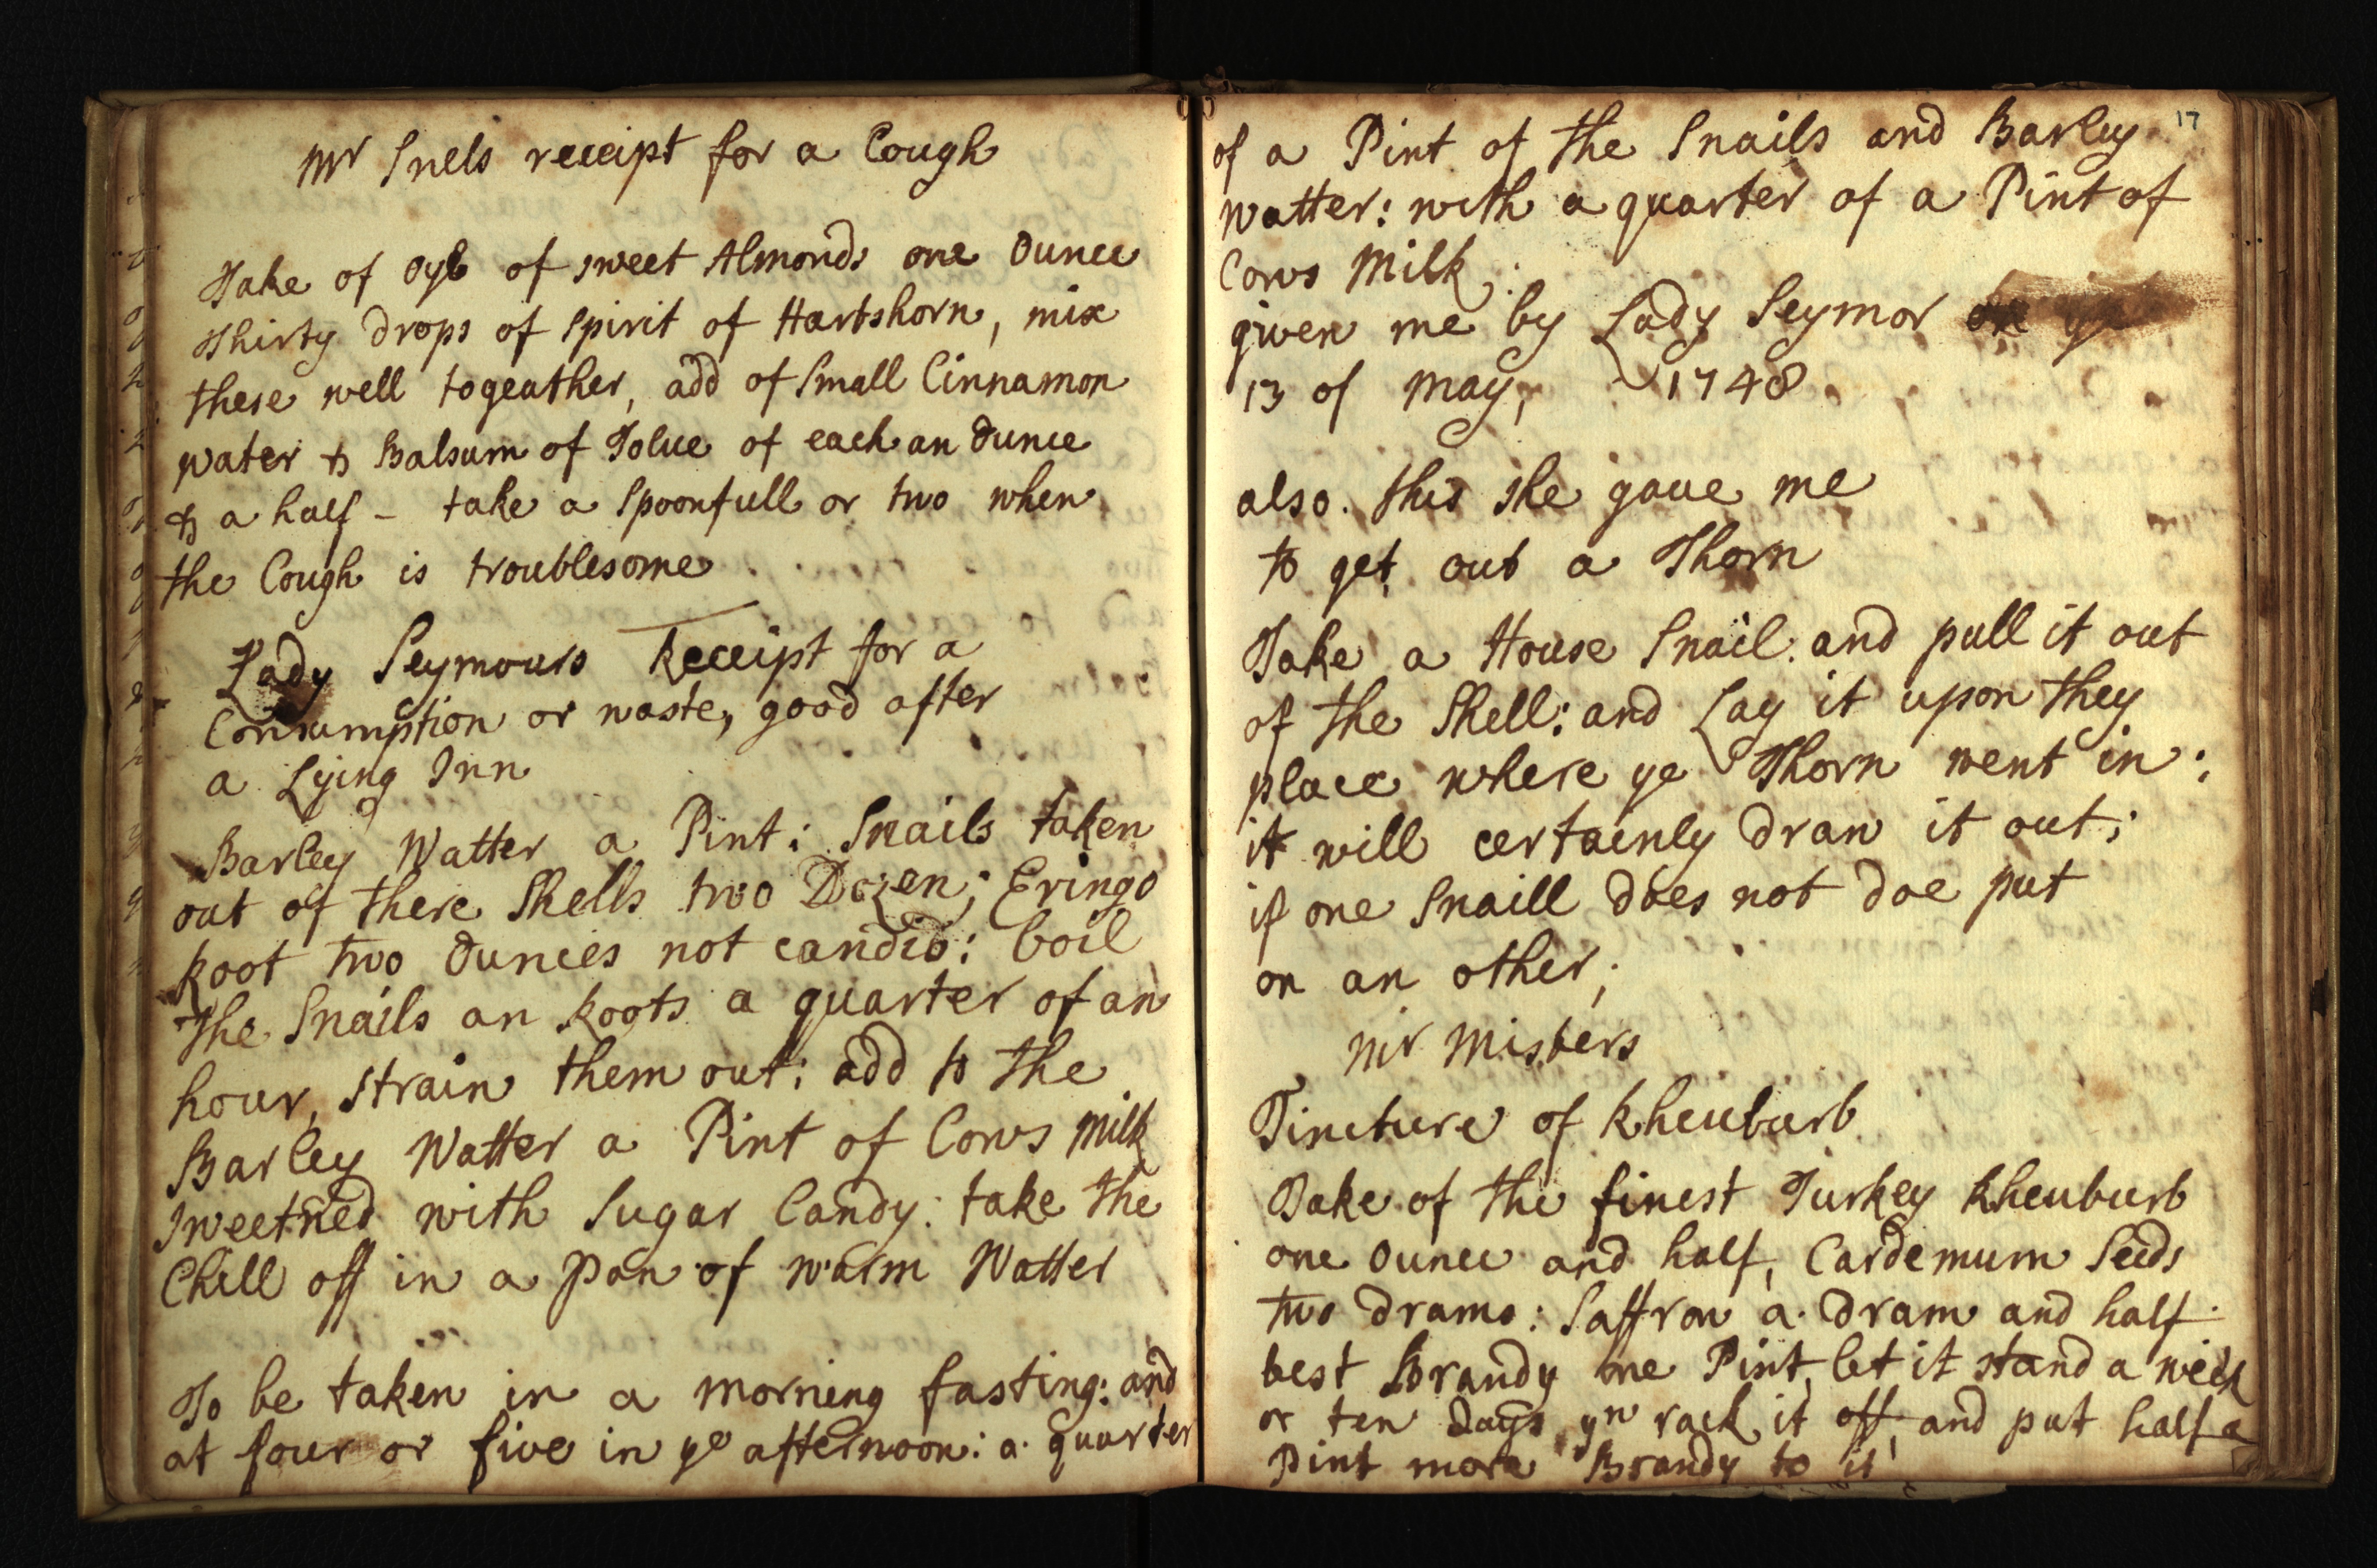 Mr Snels receipt for a Cough
Take of oyle of sweet Almonds one Ounce
Thirty drops of spirit of Hartshorn, mix
these well togeather, add of Small Cinnamon
water & Balsum of Tolue of each an Ounce
& a half - take a Spoonfull or two when
the Cough is troublesome
Lady Seymours Receipt for a
Consumption or waste, good after
a Lying Inn
Barley Watter a Pint: Snails taken
out of there Shells two Dozen; Eringo
Root two Ounces not candid: boil
The Snails an Roots a quarter of an
hour, strain them out: add to the
Barley Watter a Pint of Cows Milk
Sweetned with Sugar Candy: take the
Chill off in a Pan of warm Watter
To be taken in a morning fasting: and
at four or five in ye afternoon: a quarter
17
of a Pint of the Snails and Barley
watter: with a quarter of a Pint of
Cows Milk;
given me by Lady Seymor
13 of may, 1748
also. this she gaue me
to get out a Thorn
Take a House Snail: and pull it out
of the Shell: and Lay it upon they
place where ye Thorn went in:
it will certainly draw it out;
if one Snaill does not doe put
on an other;
Mr Misters
Tincture of Rheuburb
Take of the finest Turkey Rheuburb
one Ounce and half, Cardemum Seeds
two drams: Saffron a dram and half
best Brandy one Pint, let it stand a week
or ten Days yn rack it off, and put half a
Pint more Brandy to it